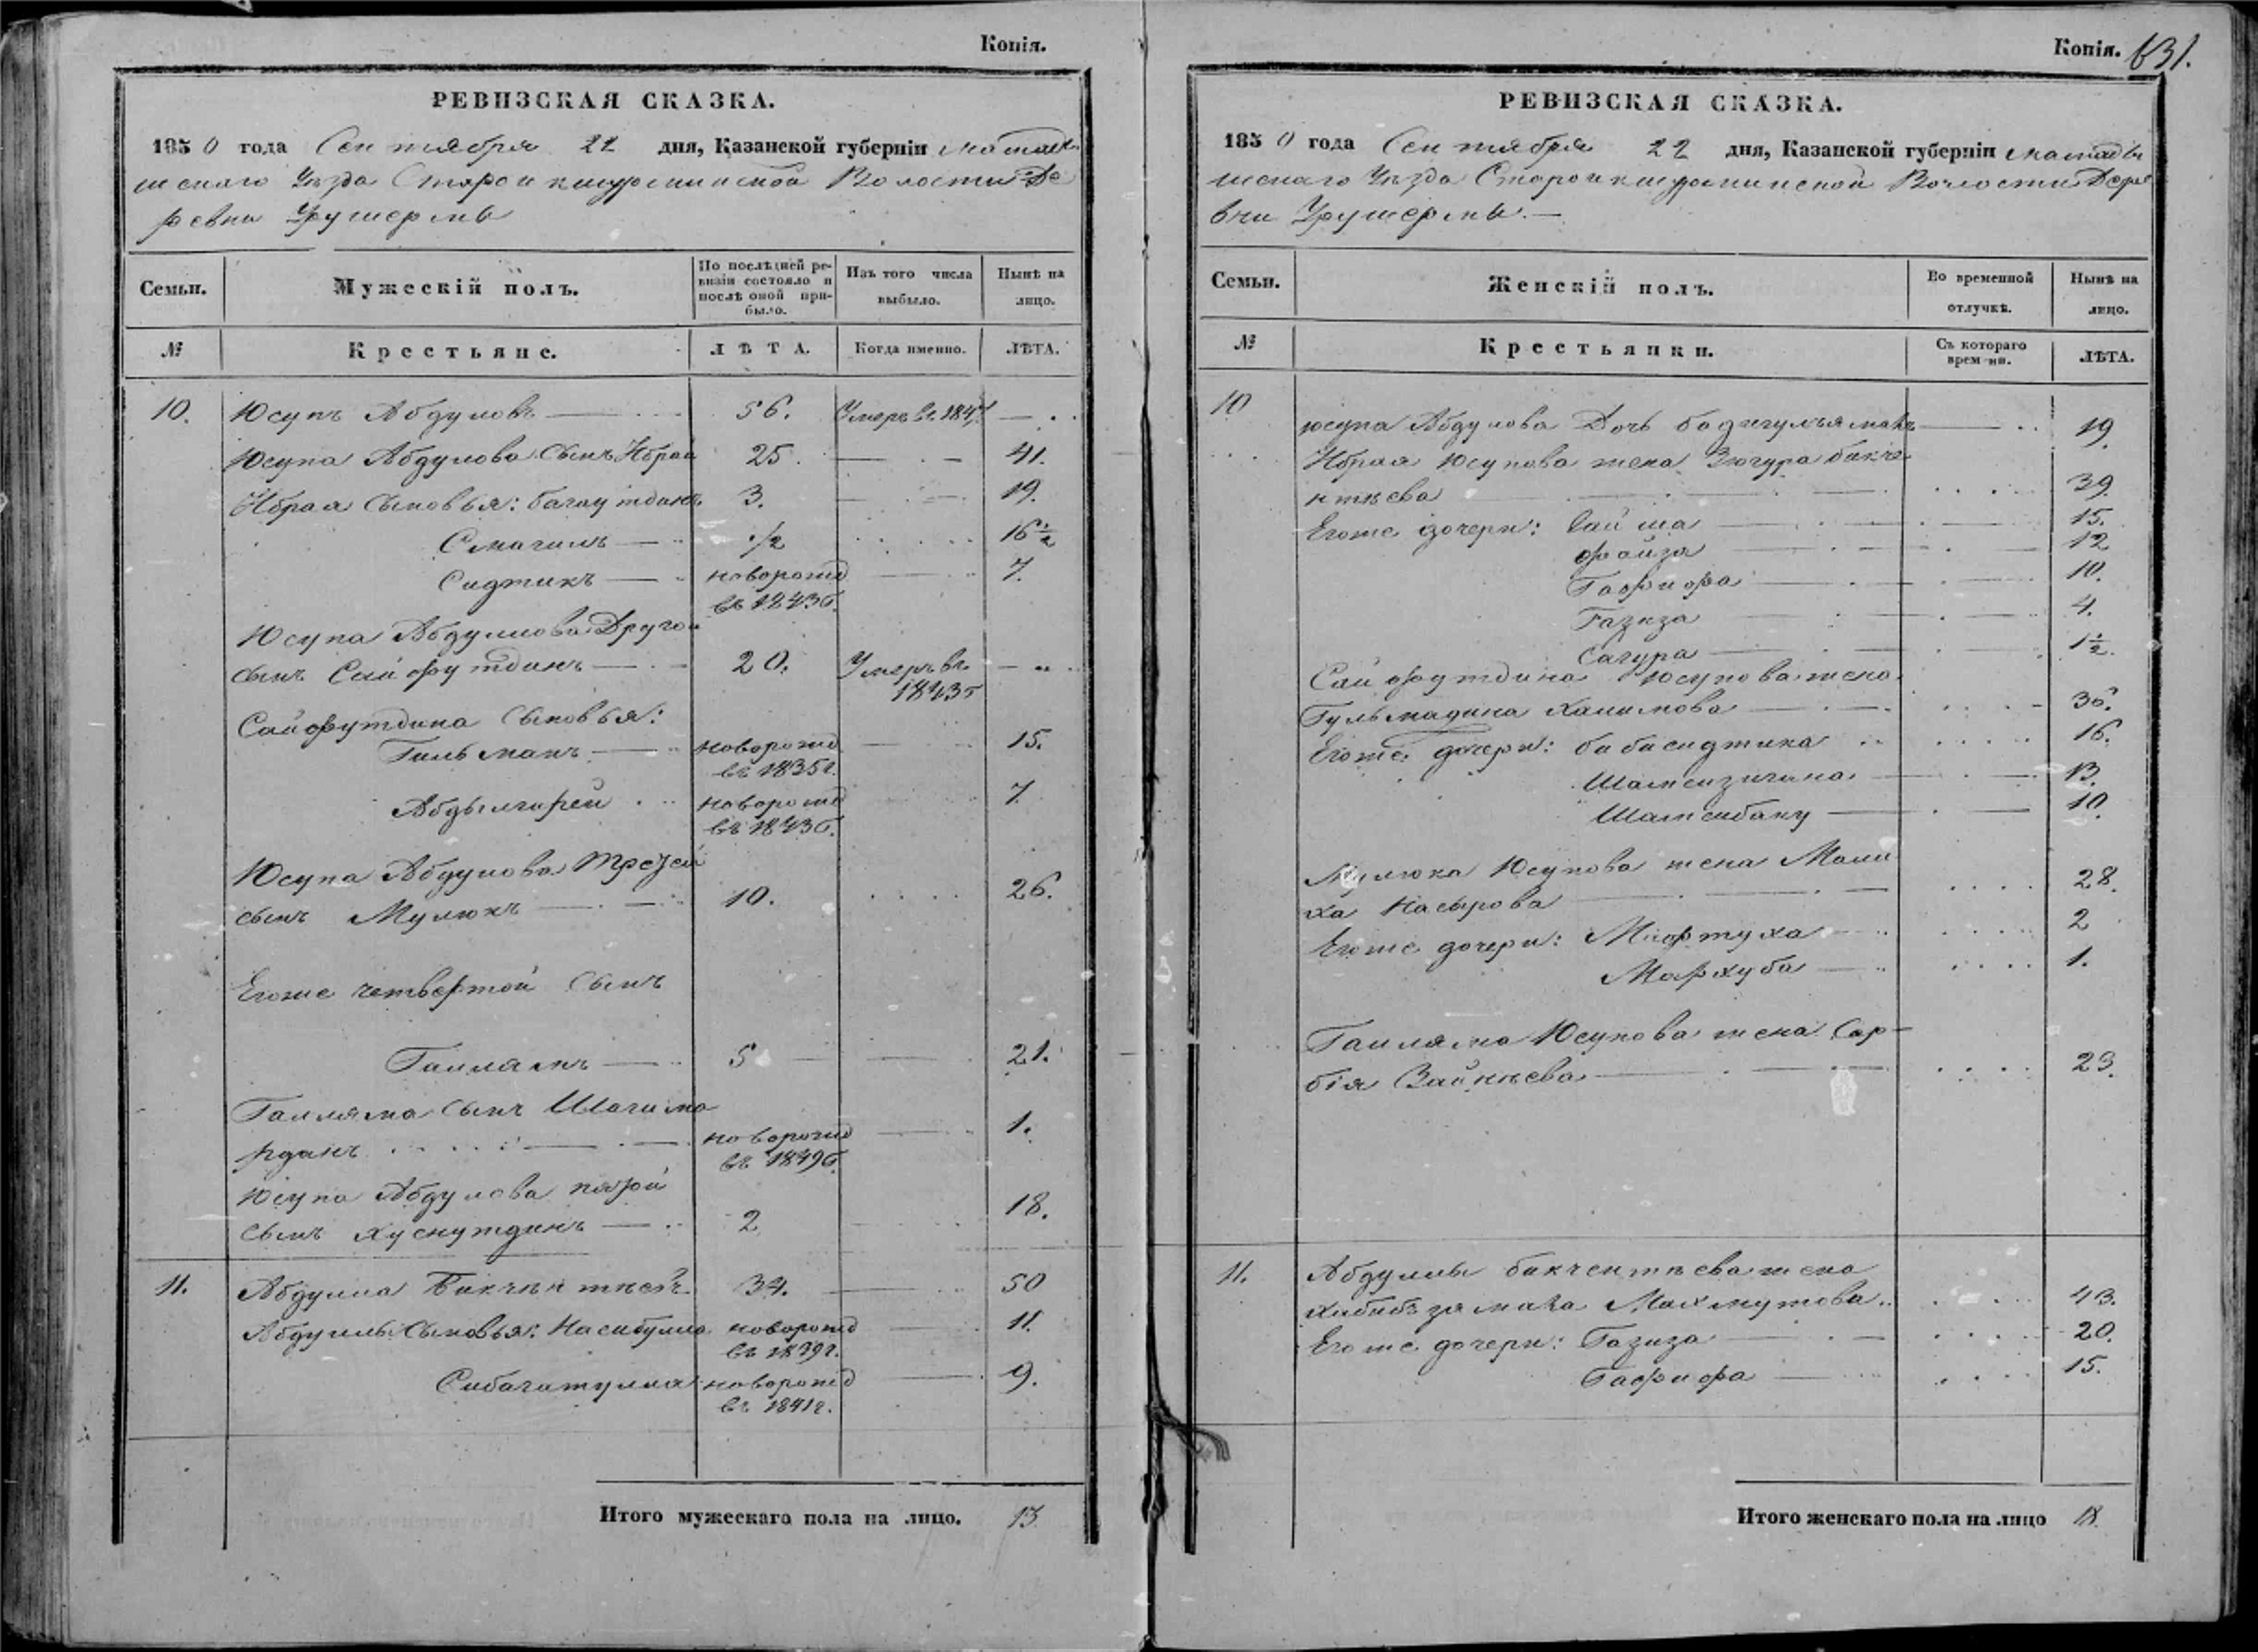 Копія.
РЕВИЗСКАЯ СКАЗКА.
1850 года Сентября 22 дня, Казанской губерніи Мамады
шскаго Уѣзда Старо икшурминской Волости Де
ревни Урушермы
Семьи.
Мужескій полъ.
По послѣдней ре-
визіи состояло и
послѣ оной при-
было.
Изъ того числа
выбыло.
Нынѣ на
лицо.
№
Крестьяне.
ЛѢТА.
Когда именно.
ЛѢТА.
10. Юсупъ Абдуловъ 56. Умеръ въ 1847
Юсупа Абдулова Сынъ Ибрай 25. 41.
Ибрая Сыновья: багаутдинъ 3. 19.
Смагилъ 1/2 16 1/2
Сидтикъ новорожд 7.
въ 1843г.
Юсупа Абдулова Другой
сынъ Сайфутдинъ 20. Умеръ въ
1843г
Сайфутдина Сыновья:
Гильманъ новорожд 15.
въ 1835г.
Абдылгирей новорожд 7.
въ 1843г.
Юсупа Абдулова третей
сынъ Мулюкъ 10. 26.
Егоже четвертой Сынъ
Галлямъ 5 21.
Галляма Сынъ Шагима
рданъ новорожд 1.
въ 1849г.
Юсупа Абдулова пятой
сынъ Хуснутдинъ 2 18.
11. Абдулла Бикчентѣевъ 34. 50
Абдуллы Сыновья: Насибулла новорожд 11.
въ 1839г.
Сибагатулла новорожд 9.
въ 1841г.
Итого мужескаго пола на лицо. 13
Копія. 631.
РЕВИЗСКАЯ СКАЗКА.
1850 года Сентября 22 дня, Казанской губерніи Мамады
шскаго Уѣзда Староикшурминской Волости Дере
вни Урушермы.
Семьи.
Женскій полъ.
Во временной
отлучкѣ.
Нынѣ на
лицо.
№
Крестьянки.
Съ котораго
времени.
ЛѢТА.
10
юсупа Абдулова Дочь бадигулъямалъ 19.
Ибрая Юсупова жена Зюгура бикче
нтѣева 39.
Егоже дочери: Гайша 15.
файза 12
Гафифа 10.
Газиза 4.
Сагура 1 1/2.
Сайфутдина Юсупова жена
Гульмадина Халилова 36.
Егоже дочери: бибисидтика 16.
Шамсизигана 13.
Шамсибану 10.
Мулюка Юсупова жена Мали
ха Насырова 28.
Егоже дочери: Мафтуха 2
Мархуба 1.
Галляма Юсупова жена Сар-
бія Зайнѣева 23.
11. Абдуллы бикчентѣева жена
хибибъзямала Махмутова 43.
Егоже дочери: Газиза 20.
Гафифа 15.
Итого женскаго пола на лицо 18.